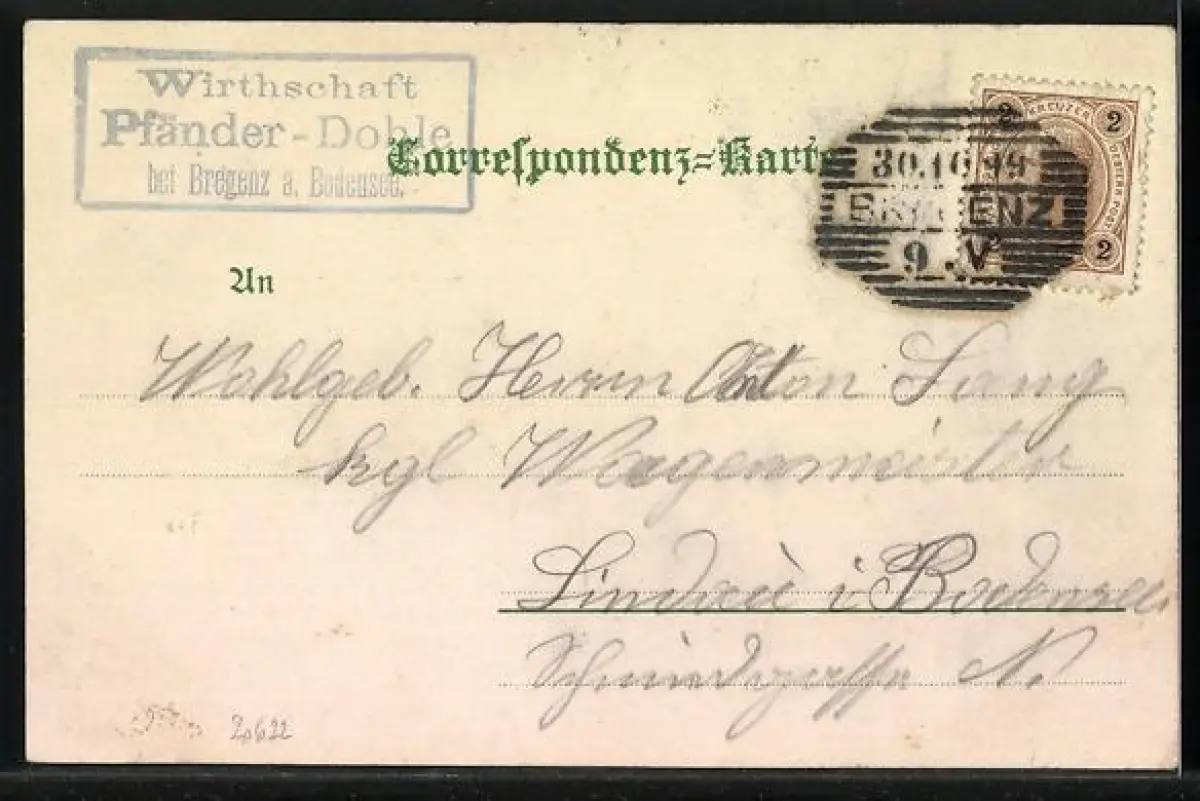 Wirthschaft
Pfänder-Dohle
bei Bregenz a. Bodensee.
Correspondenz-Karte
2 KREUZER 2
OESTERR. POST
2
30.10.99
BREGENZ
9.V
An
Wohlgeb. Herrn Anton Lang
kgl Wagenmeister
Lindau i Bodensee
Schmiedgasse N.
20622